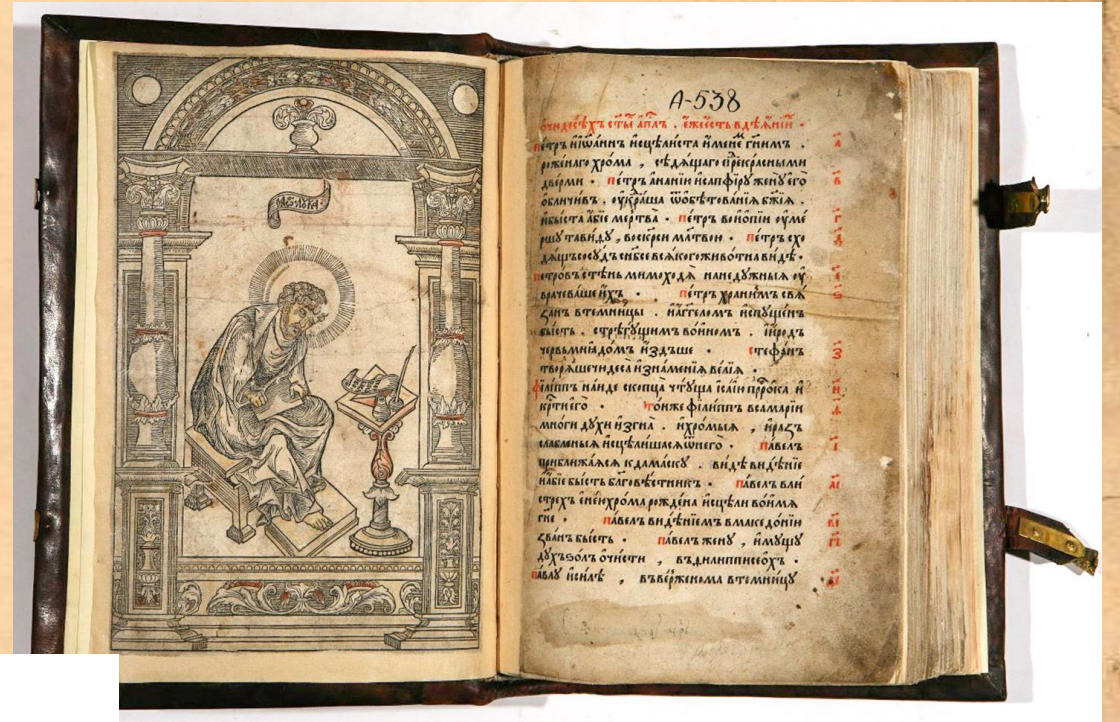 А-538
ѻчюдесѣ́хъ ст҃ы́х а҆пл҃ъ . є҆́же є҆́сть в дѣѧ́нїи .
пе́тръ и҆ і҆ѡа́ннъ и҆сцѣли́ста и҆́менемъ гн҃имъ .
роже́наго хро́ма , сѣдѧ́щаго пред кра́сными
две́рми . пе́тръ а҆на́нїю и҆ сапфі́рꙋ женꙋ̀ є҆го̀
в҃
обличи́въ . ѻу҆кра́ша ѿ ѡ҆бѣтова́нїѧ бж҃їѧ .
и҆ бы́ста а҆́бїе ме́ртва . пе́тръ во і҆ѻпі́и ѻу҆ме́
г҃
ршꙋ тави́дꙋ , воскр҃си мл҃твою . пе́тръ схо
д҃
дѧ́щь сосꙋ́дъ с нб҃се всѧ́кого живо́тна ви́дѣ .
петро́въ стѣ́нь мимоходѧ̀ на недꙋ́жныѧ ѻу҆
є҃
врачева́ше и҆́хъ . пе́тръ храни́мъ свѧ́
ѕ҃
занъ в темни́цы . и҆ а҆́гг҃еломъ и҆спꙋще́нъ
бы́сть . стрегꙋ́щимъ во́иномъ . и҆́родъ
червьмѝ ꙗ҆до́мъ и҆́здъше . стефа́нъ
з҃
творѧ́ше чюдеса̀ и҆ зна́менїѧ ве́лїѧ .
фили́ппъ на́иде скопца̀ чтꙋ́ща и҆са́їю прⷪ҇ро́ка и҆
и҃
крⷭ҇ти є҆го̀ . то́иже фили́ппъ в самарі́и
мно́ги дꙋ́хи и҆згна̀ . и҆ хро́мыѧ , и҆ разъ
сла́бленыѧ и҆сцѣли́шасѧ ѿ него̀ . па́велъ
і҃
приближа́ѧсѧ к дама́скꙋ . ви́дѣ видѣ́нїе
и҆ а҆́бїе бы́сть благовѣ́стникъ . па́велъ в ли
а҃і
стрехъ хро́ма рожде́на и҆сцѣлѝ во и҆́мѧ
гн҃е . па́велъ видѣ́нїемъ в македо́нїи
в҃і
зва́нъ бы́сть . па́велъ женꙋ̀ , и҆мꙋ́щꙋ
г҃і
дꙋ́хъ ѕо́лъ ѻчи́сти , въ филипписео́хъ .
па́влꙋ и҆ си́лѣ , въве́рженома в темни́цꙋ
д҃і